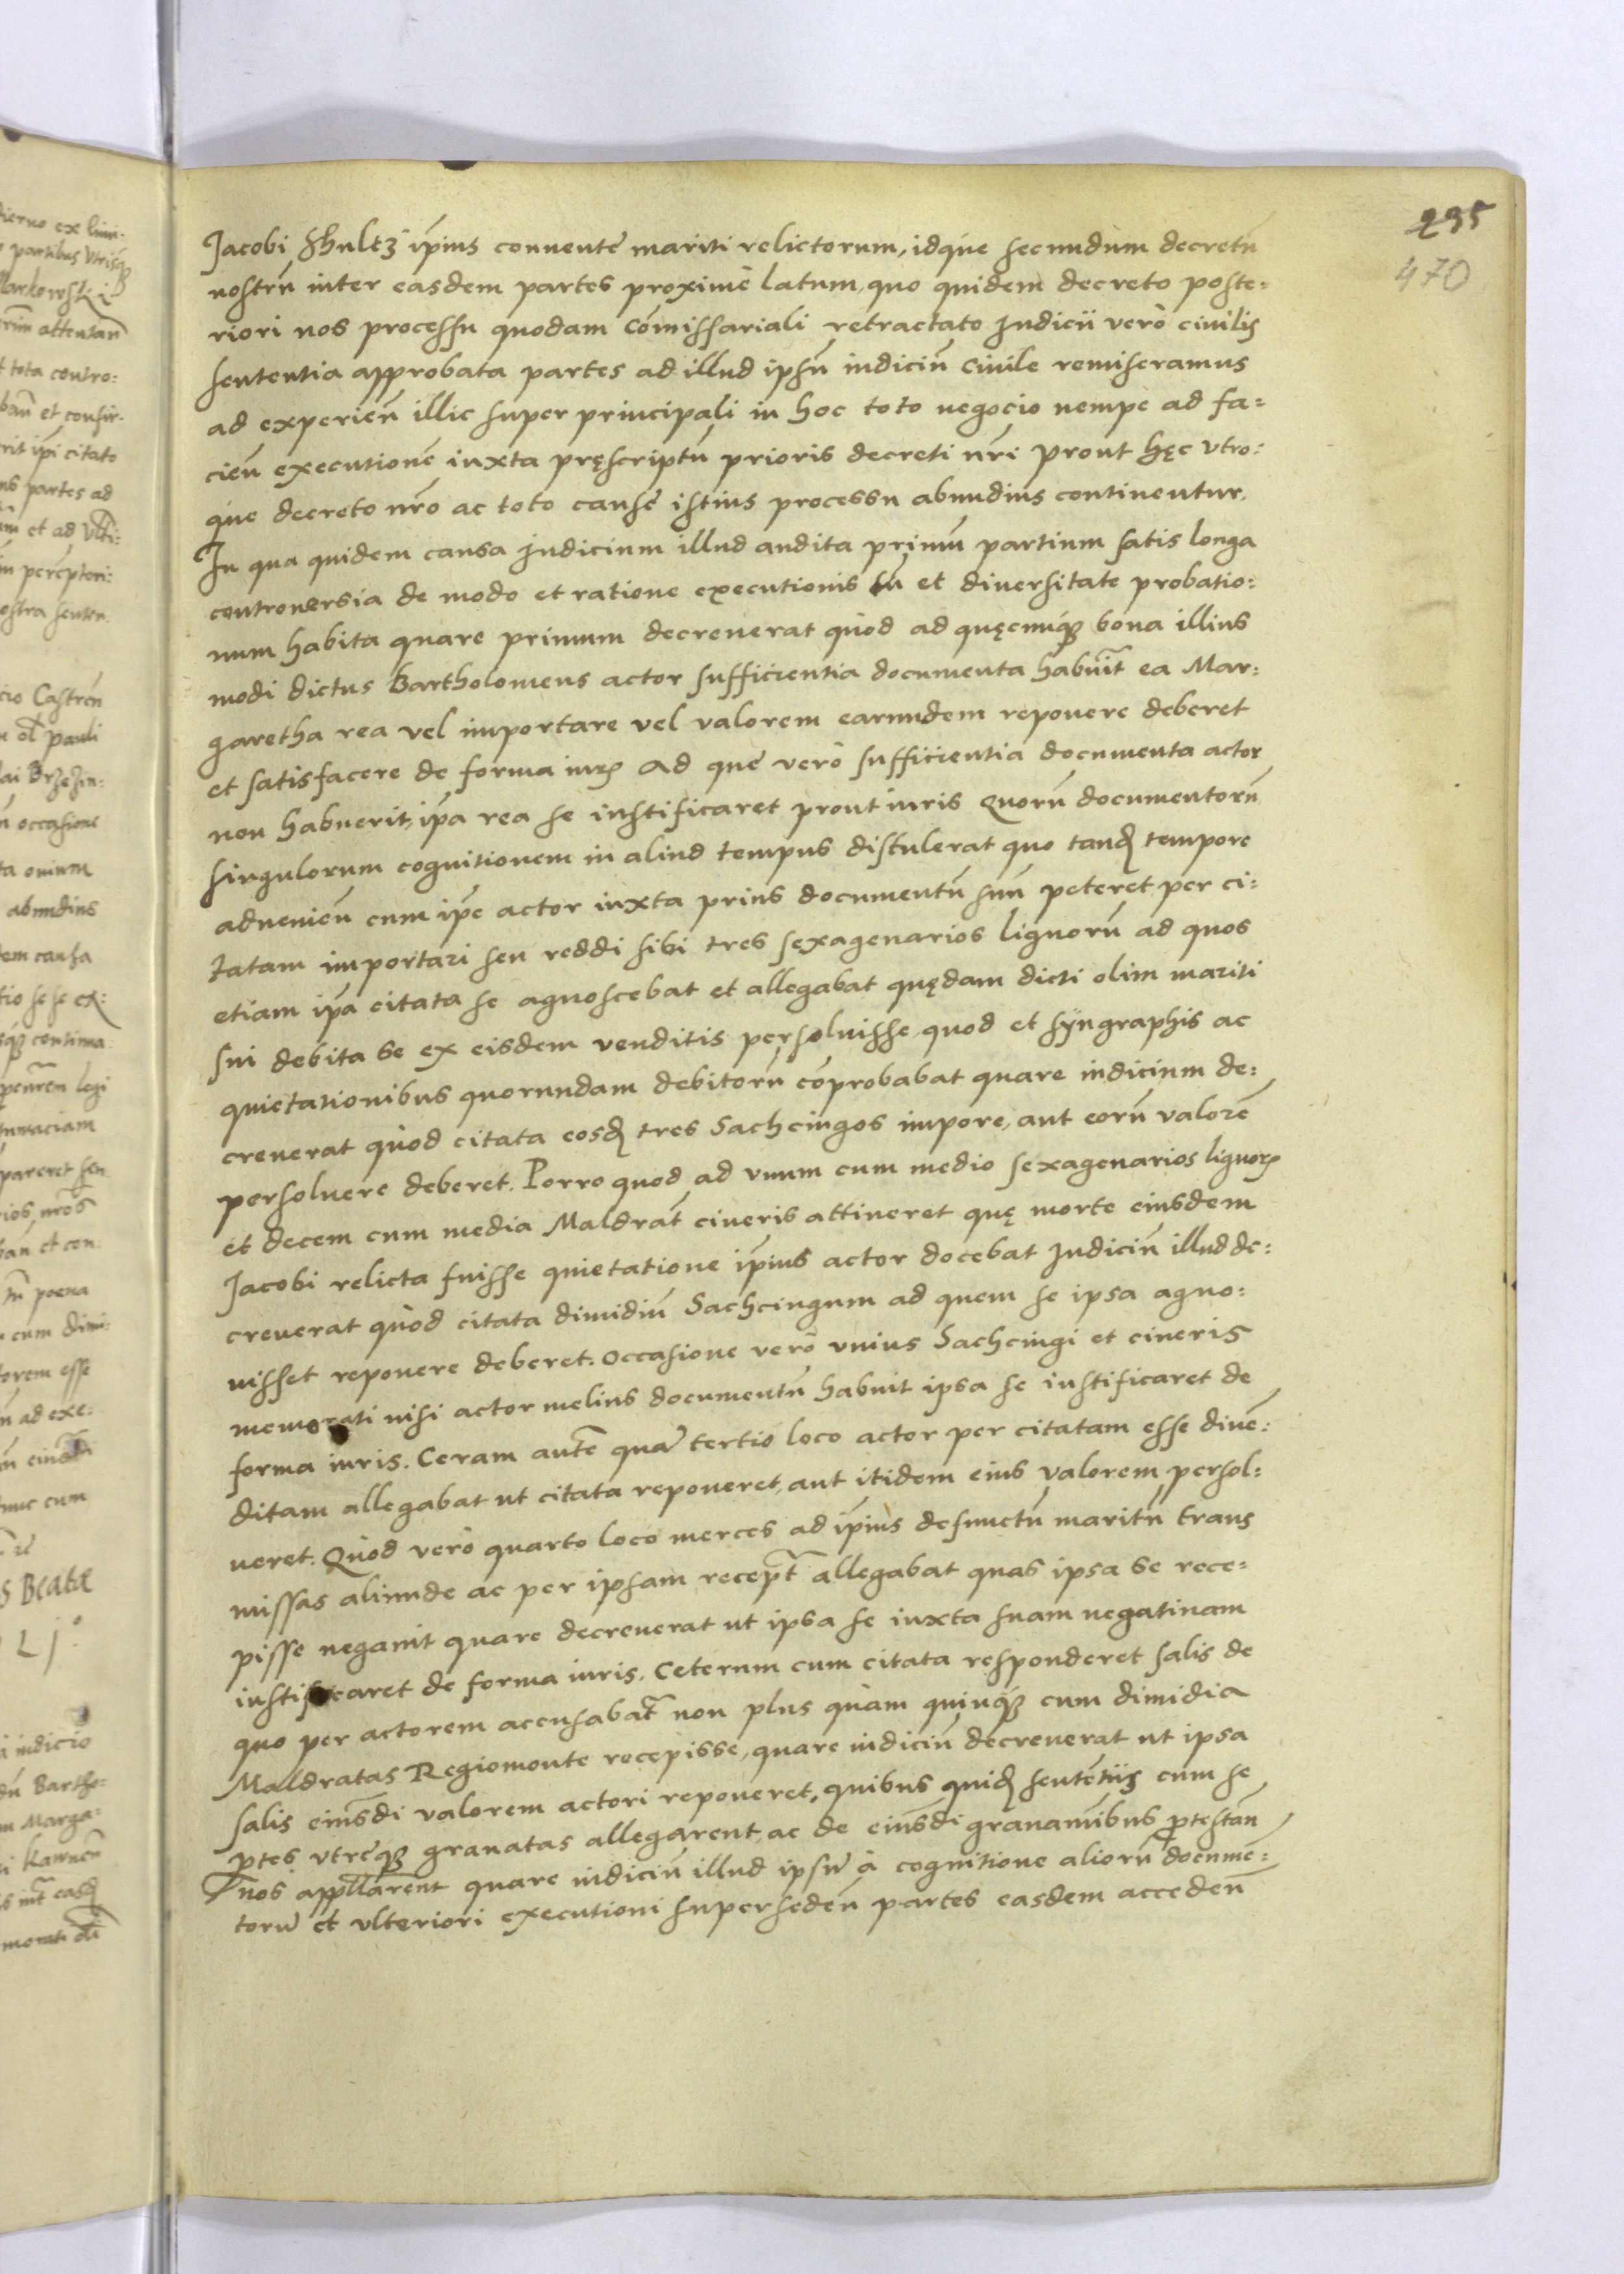 235
470
Jacobi Shultz ip̃ius conuente mariti relictorum, idque secundum decretũ
nostrũ inter easdem partes proxime latum, quo quidem decreto poste:
riori nos processu quodam com̃issariali retractato Iudicii verò ciuilis
sententia approbata partes ad illud ipsũ iudiciũ Ciuile remiseramus
ad experieñ illic super principali in hoc toto negocio nempe ad fa:
cieñ executionẽ iuxta pręscriptũ prioris decreti nr̃i prout hęc vtro:
que decreto nr̃o ac toto causę istius processu abundius continentur.
In qua quidem causa Iudicium illud audita primũ partium satis longa
controuersia de modo et ratione executionis tũ et diuersitate probatio:
num habita quare primum decreuerat quòd ad quęcunqꝫ bona illius
modi dictus Bartholomeus actor sufficientia documenta habuĩt ea Mar:
garetha rea vel importare vel valorem earundem reponere deberet
et satisfacere de forma iurꝭ Ad quę verò sufficientia documenta actor
non habuerit, ip̃a rea se iustificaret prout iuris Quorũ documentorũ
singulorum cognitionem in aliud tempus distulerat quo tandẽ tempore
aduenieñ cum ip̃e actor iuxta prius documentũ suũ peteret per ci:
tatam importari seu reddi sibi tres sexagenarios lignorũ ad quos
etiam ip̃a citata se agnoscebat et allegabat quędam dicti olim mariti
sui debita se ex eisdem venditis persoluisse quod et syngraphis ac
quietationibus quorundam debitorũ cõprobabat quare iudicium de:
creuerat quòd citata eosdẽ tres Sachcingos impore, aut eorũ valorẽ
persoluere deberet. Porro quod ad vnum cum medio sexagenarios lignorꝫ
et decem cum media Maldrat̃ cineris attineret quę morte eiusdem
Jacobi relicta fuisse quietatione ip̃ius actor docebat Iudiciũ illud de:
creuerat quòd citata dimidiũ Sachcingum ad quem se ipsa agno:
uisset reponere deberet. Occasione verò vnius Sachcingi et cineris
memorati nisi actor melius documentũ habuit ipsa se iustificaret de
forma iuris. Ceram autẽ quã tertio loco actor per citatam esse diuẽ:
ditam allegabat ut citata reponeret, aut itidem eius valorem persol:
ueret. Quòd verò quarto loco merces ad ip̃ius defunctũ maritũ trans
missas aliunde ac per ipsam recept̃ allegabat quas ipsa se rece:
pisse negauit quare decreuerat ut ipsa se iuxta suam negatiuam
iustificaret de forma iuris. Ceterum cum citata responderet salis de
quo per actorem accusabat̃ non plus quàm quinqꝫ cum dimidia
Maldratas Regiomonte recepisse, quare iudiciũ decreuerat ut ipsa
salis eiusdi valorem actori reponeret, quibus quidẽ sentẽtiis cum se
ptes vtręqꝫ grauatas allegarent, ac de eiusdi grauaminibus ꝓtestañ
nos appll̃arent quare iudiciũ illud ipsũ à cognitione aliorũ documẽ:
torũ et vlteriori executioni supersedeñ partes easdem accedeñ